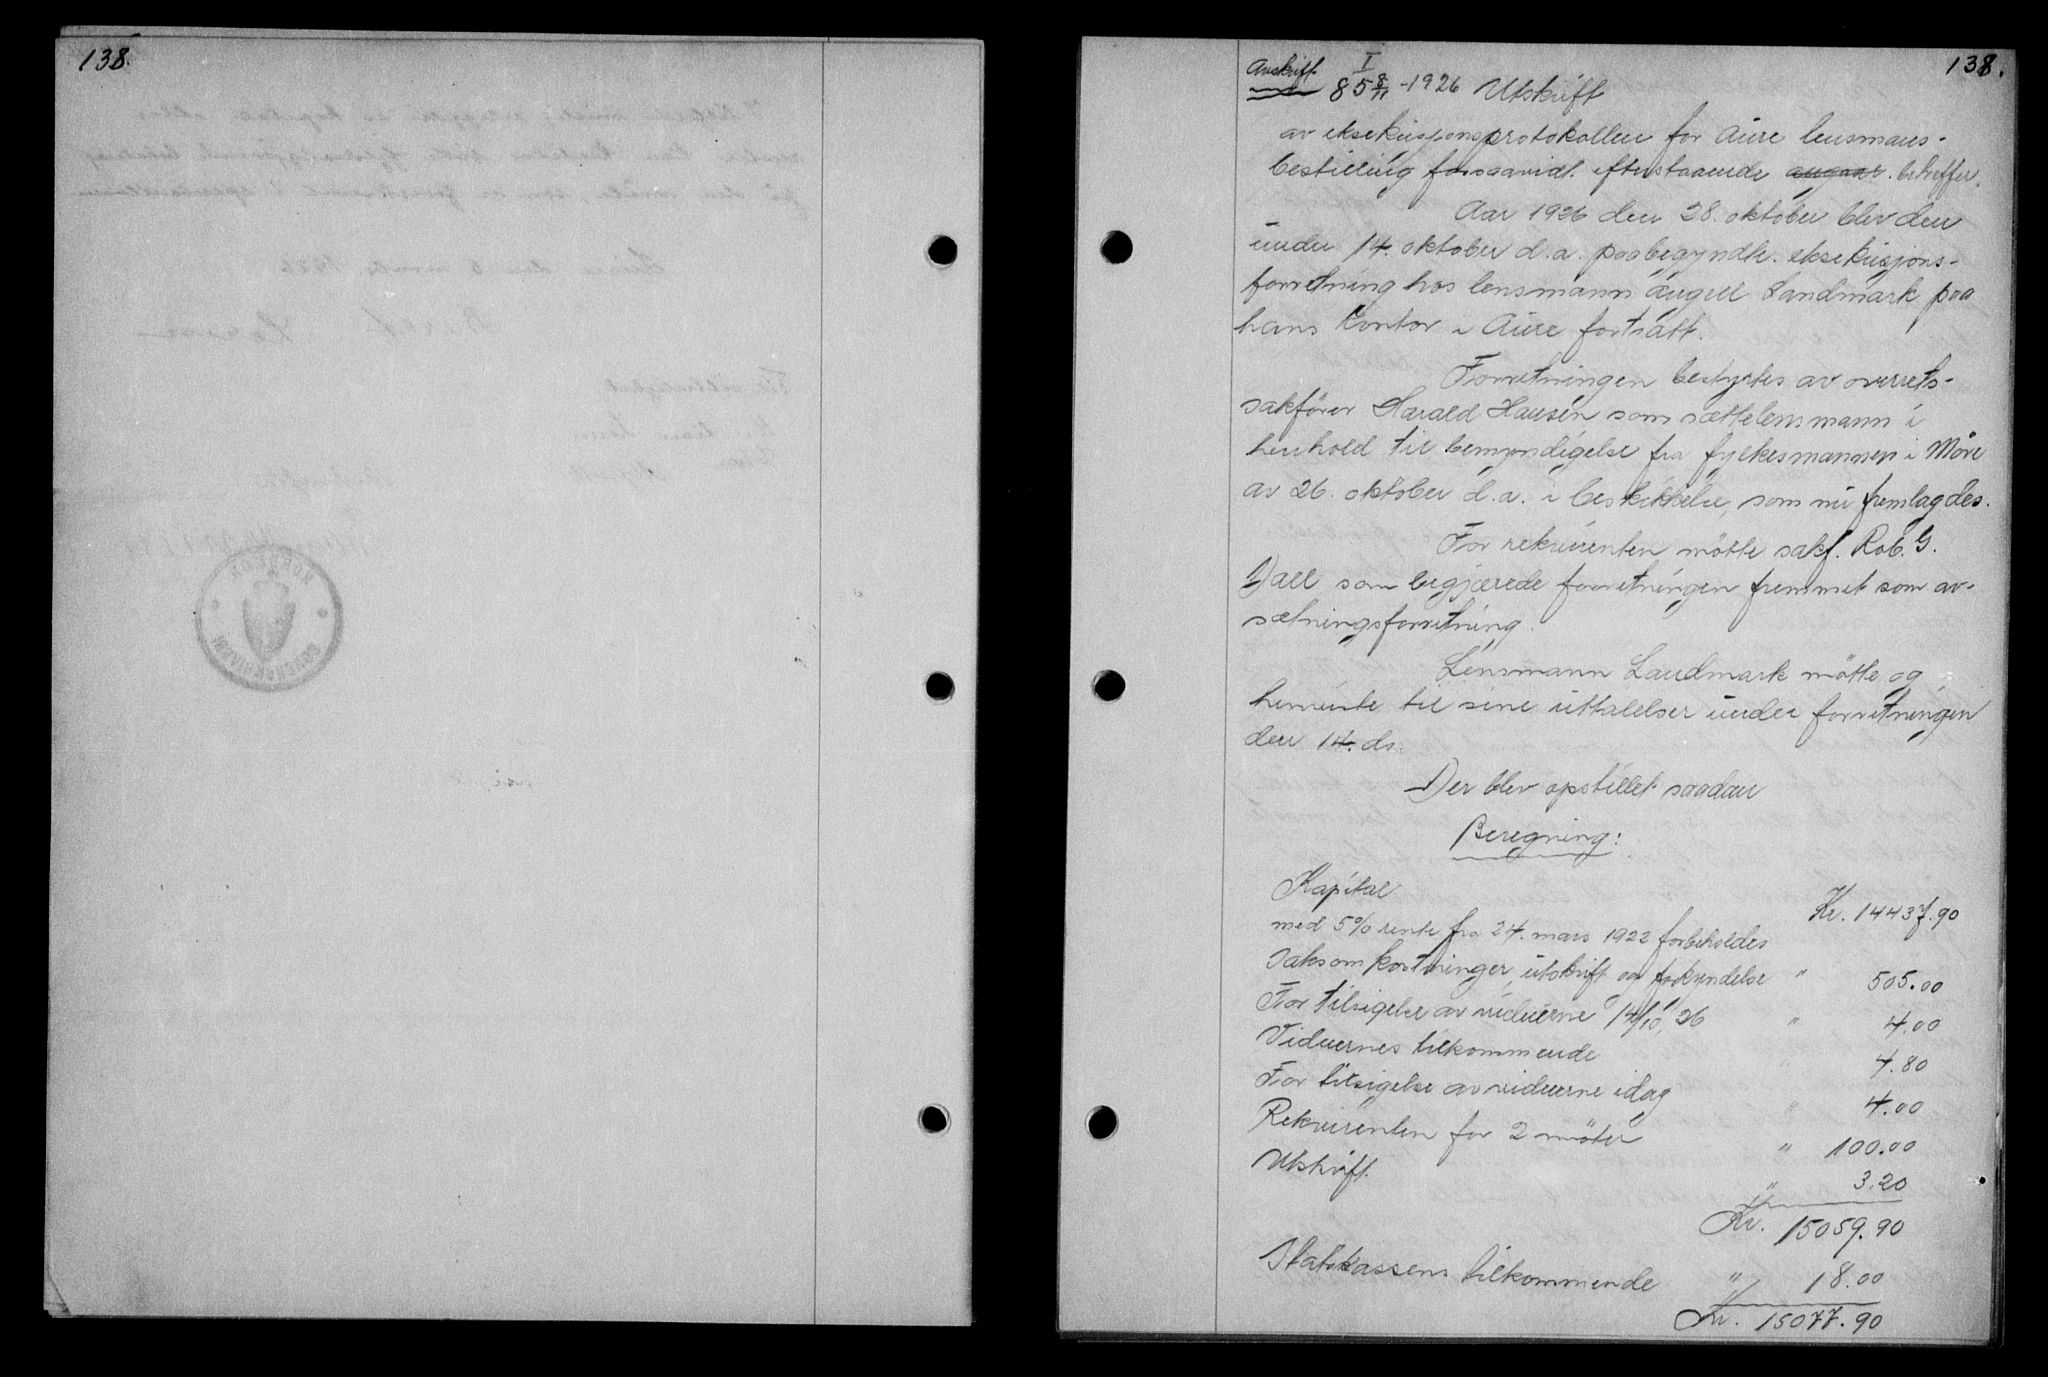 138.
138.
Avskrift. I
85 8/11 - 1926 Utskrift
av eksekusjonsprotokollen for Aure lensmans-
bestilling forsaavidt efterstaaende angaar. betreffer.
Aar 1926 den 28. oktober blev den
under 14. oktober d.a. paabegyndte eksekusjons-
forretning hos lensmann Angell Landmark paa
hans kontor i Aure fortsatt.
Forretningen bestyrtes av overrets-
sakfører Harald Hansen som sættelensmann i
henhold til bemyndigelse fra fylkesmannen i Møre
av 26. oktober d.a. i beskikkelse, som nu fremlagdes.
For rekvirenten møtte sakf. Rob. G.
Dall som begjærede forretningen fremmet som av-
sætningsforretning.
Lensmann Landmark møtte og
henviste til sine uttalelser under forretningen
den 14. ds.
Der blev opstillet saadan
Beregning:
Kapital Kr. 14437.90
med 5% rente fra 24. mars 1922 forbeholdes
Saksomkostninger, utskrift og forkyndelse " 505.00
For tilsigelse av vidnerne 14/10, 26 " 4.00
Vidnernes tilkommende 4.80
For tilsigelse av vidnerne idag " 4.00
Rekvirenten for 2 møter " 100.00
Utskrift. " 3.20
Kr. 15059.90
Statskassens tilkommende " 18.00
Kr. 15077.90